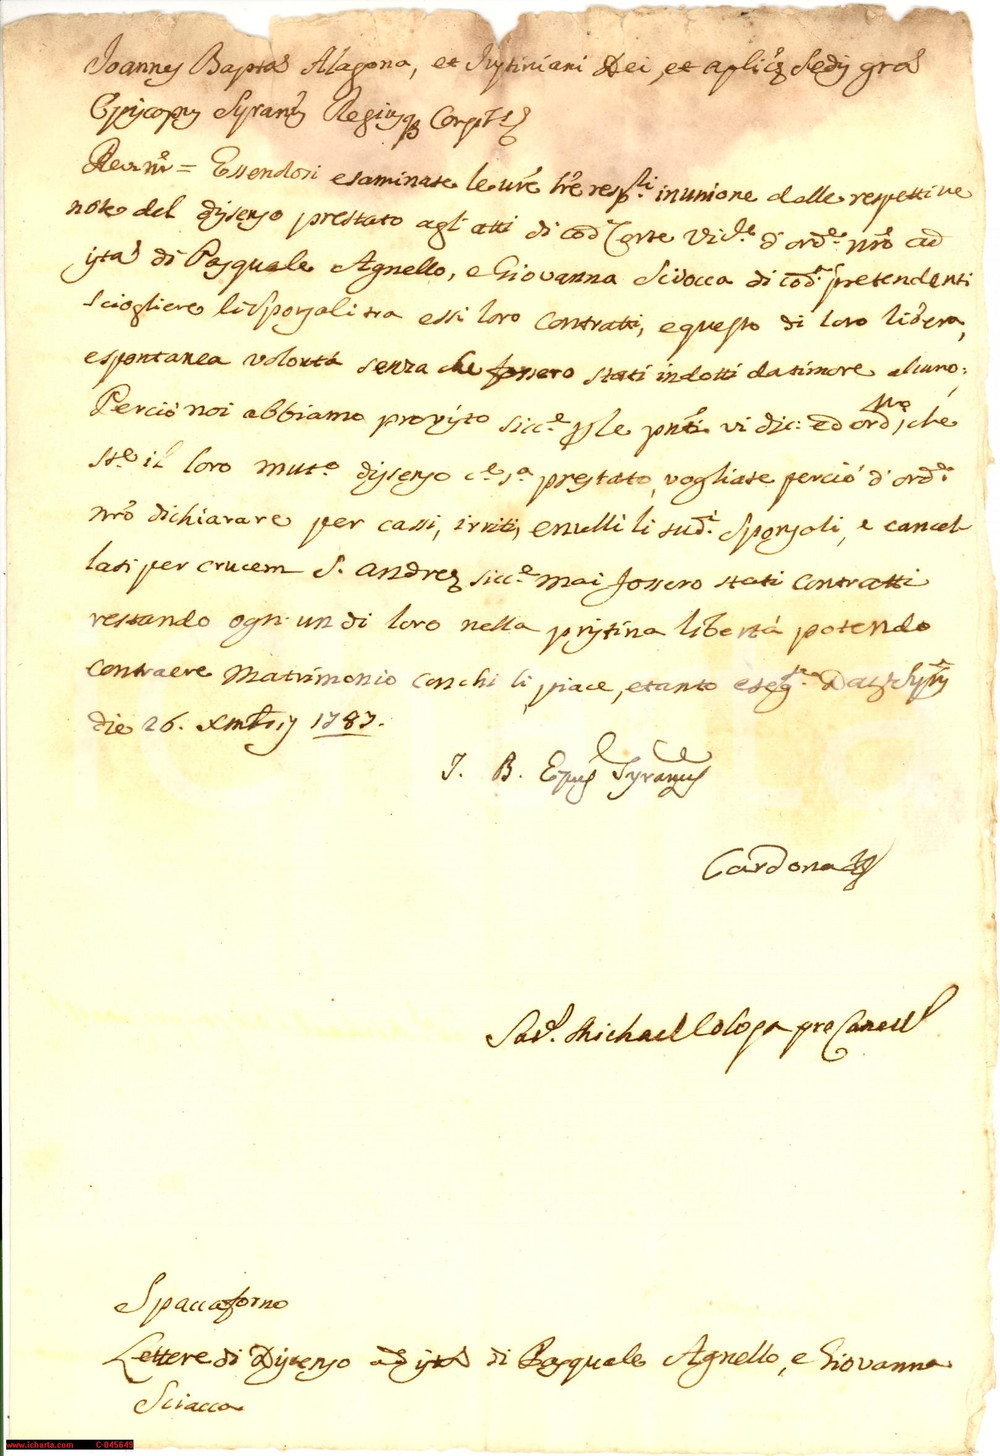 Joannes Bapta Alagona, et Justiniani Dei, et aplicæ Sedis gra
Episcopus Syranus Regiusq Consrs
Revnr = Essendosi esaminate le vre lre respli in unione delle respettive
note del dissenso prestato agl'atti di cod Corte Vicle d'orde nro ad
istas di Pasquale Agnello, e Giovanna Sciocca di cod pretendenti
sciogliere li Sponsali tra essi loro contratti, e questo di loro libera,
e spontanea volontà senza che fossero stati indotti da timore alcuno;
Perciò noi abbiamo provisto sicce p le pnti vi dic: ed ord nro, che
Ste il loro muto dissenso ce sa prestato, vogliate perciò d'orde
nro dichiarare per cassi, irriti, e nulli li sudi Sponsali, e cancel
lati per crucem S. Andreæ sicce mai fossero stati contratti
restando ogn'un di loro nella pristina libertà potendo
contraere Matrimonio con chi li piace, e tanto esegte Dat Syris
die 26. Xmbris 1787.
J. B. Epus Syranus
Cardona
Sac. Michael Cologa pro Cancell
Spaccaforno
Lettere di Dissenso ad istas di Pasquale Agnello, e Giovanna
Sciacca
www.icharta.com C-045649